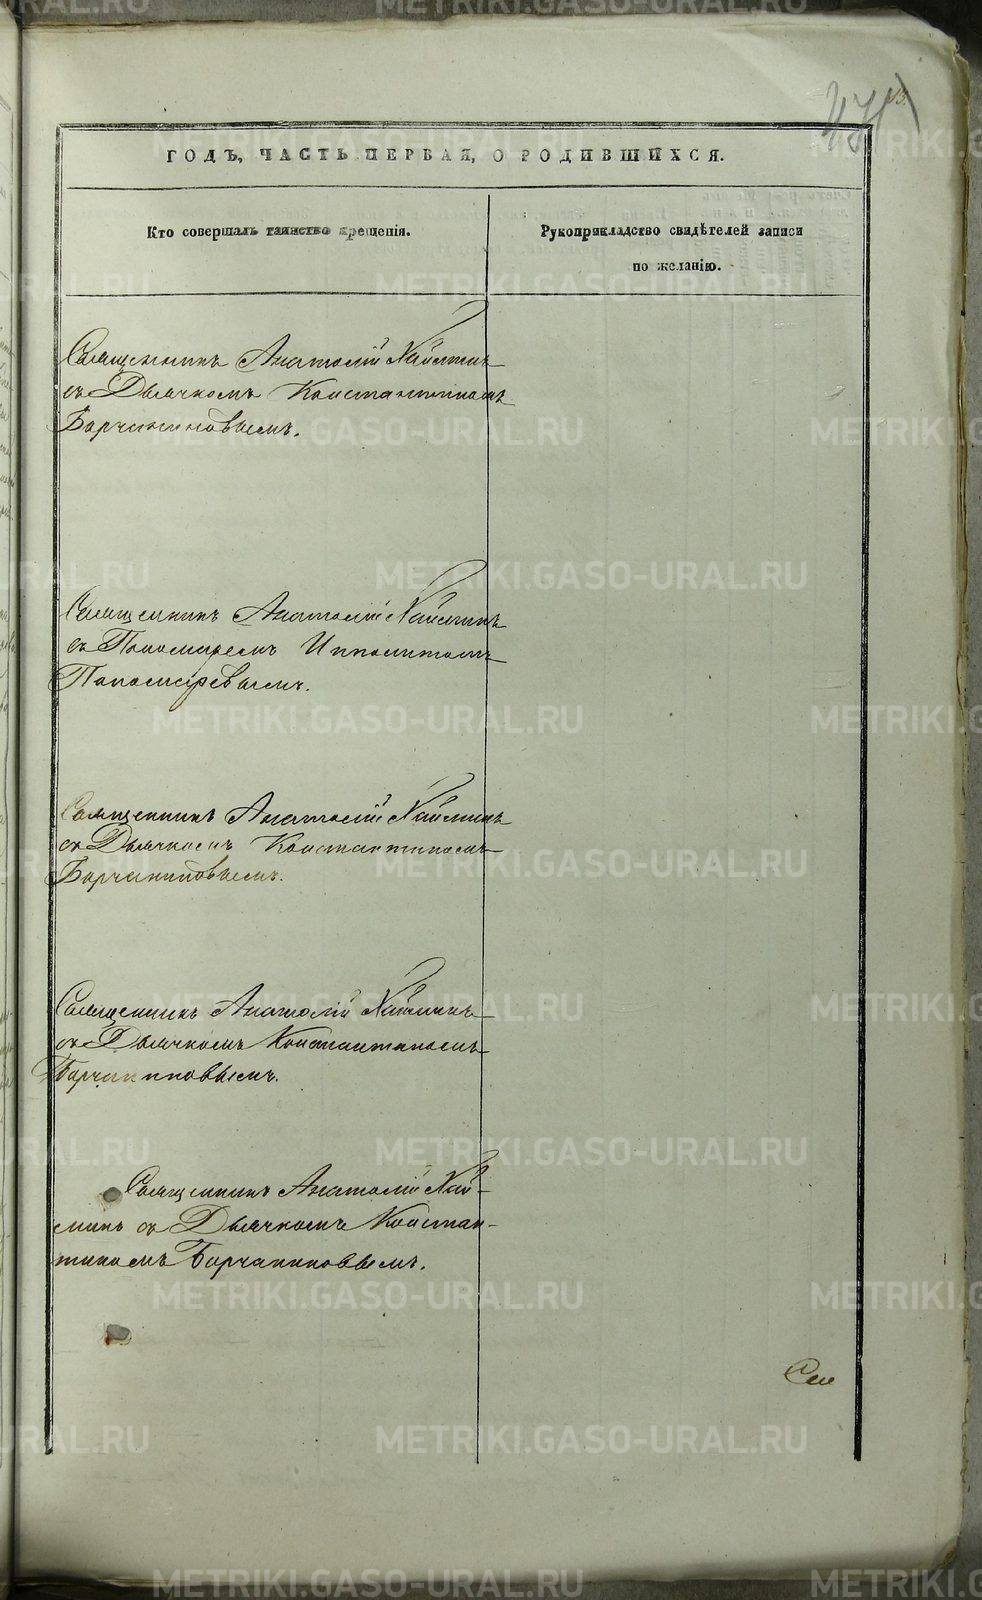 ГОДЪ, ЧАСТЬ ПЕРВАЯ, О РОДИВШИХСЯ.
Кто совершалъ таинство крещенія.
Рукоприкладство свидѣтелей записи
по желанію.
Священникъ Анатолій Хаймикъ
съ Дьячкомъ Константиномъ
Борчаниновымъ.
Священникъ Анатолій
съ Пономаремъ Ипполитомъ
Пономаревымъ.
Священникъ Анатолій
съ Дьячкомъ Константиномъ
Борчаниновымъ.
Священникъ Анатолій
съ Дьячкомъ Константиномъ
Борчаниновымъ.
Священникъ Анатолій
съ Дьячкомъ Констан-
тиномъ Борчаниновымъ.
METRIKI.GASO-URAL.RU